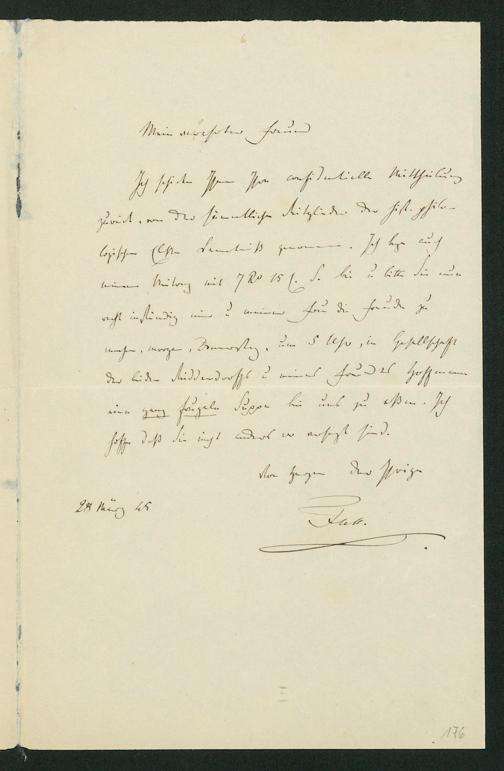 Mein verehrter Freund
Ich schicke Ihnen Ihre confidentielle Mittheilung
zurück, von der sämmtliche Mitglieder der hist. philo-
logischen Classe Kenntniß genommen. Ich lege auch
meinen Beitrag mit 7 R 15 S. bei u bitte Sie nun
recht inständig mir u meiner Frau die Freude zu
machen, morgen, Donnerstag, um 5 Uhr, in Gesellschaft
der beiden Middendorffs u meines Freundes Hoffmann
eine ganz frugale Suppe bei uns zu essen. Ich
hoffe daß Sie nicht anders wo versagt sind.
Von Herzen der Ihrige
28 März 45
176